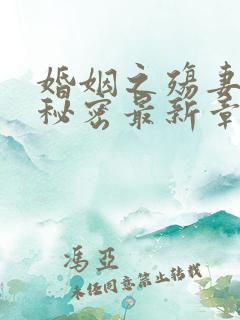 婚姻之殇妻
秘密最新章
冯亚
未经同意禁止转载